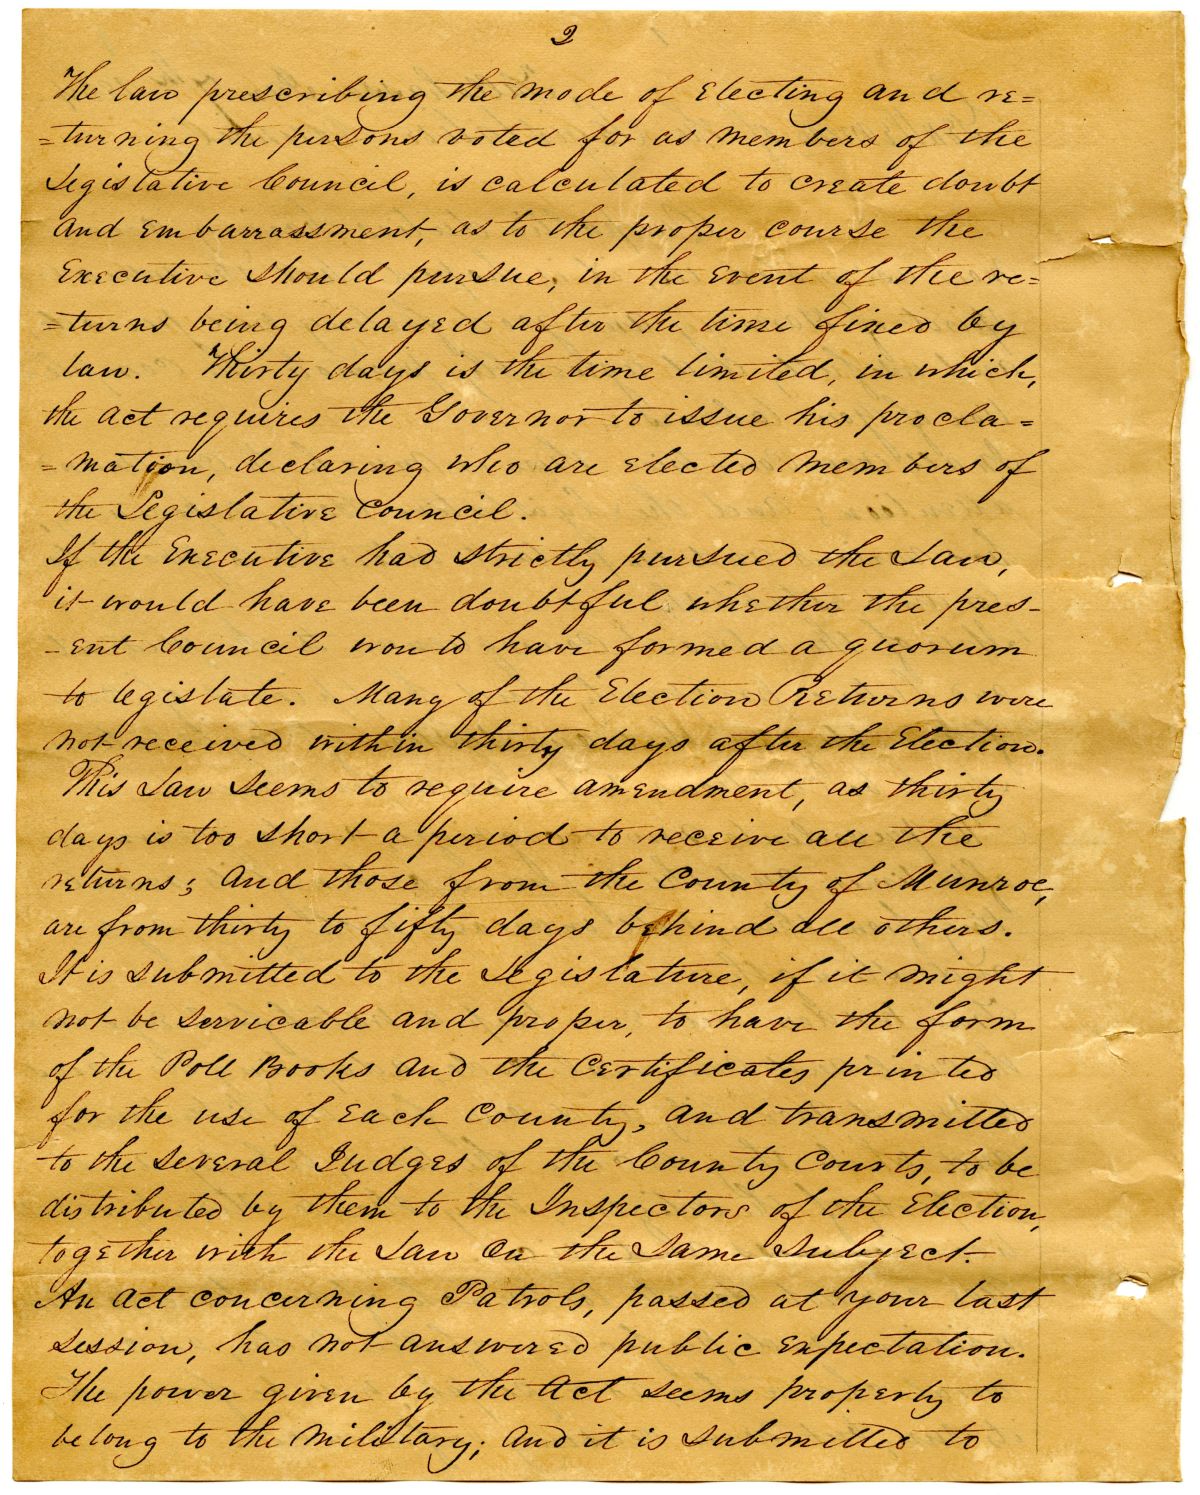 2
The law prescribing the mode of Electing and re=
=turning the persons voted for as members of the
Legislative Council, is calculated to create doubt
and embarrassment, as to the proper course the
Executive should pursue, in the event of the re=
=turns being delayed after the time fixed by
law. Thirty days is the time limited, in which,
the act requires the Governor to issue his procla=
=mation, declaring who are elected members of
the Legislative Council.
If the Executive had strictly pursued the Law,
it would have been doubtful whether the pres-
-ent Council would have formed a quorum
to legislate. Many of the Election Returns were
not received within thirty days after the Election.
This Law seems to require amendment, as thirty
days is too short a period to receive all the
returns; and those from the County of Munroe,
are from thirty to fifty days behind all others.
It is submitted to the Legislature, if it might
not be servicable and proper, to have the form
of the Poll Books and the Certificates printed
for the use of each County, and transmitted
to the several Judges of the County Courts, to be
distributed by them to the Inspectors of the Election,
together with the Law on the same subject.
An act concerning Patrols, passed at your last
session, has not answered public expectation.
The power given by the Act seems properly to
belong to the military; and it is submitted to